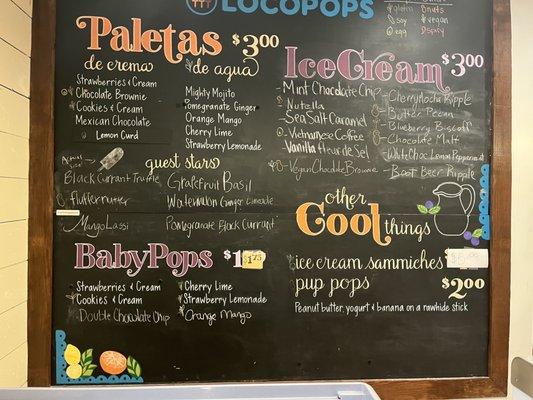 LOCOPOPS
gluten nuts
soy vegan
egg
Paletas $3.00
de crema
Strawberries & Cream
Chocolate Brownie
Cookies & Cream
Mexican Chocolate
Lemon Curd
de agua
Mighty Mojito
Pomegranate Ginger
Orange Mango
Cherry Lime
Strawberry Lemonade
guest stars
Black Currant Truffle
fluffernutter
Mango Lassi
Grapefruit Basil
Watermelon Ginger Limeade
Pomegranate Black Currant
BabyPops $1.75
Strawberries & Cream
Cookies & Cream
Double Chocolate Chip
Cherry Lime
Strawberry Lemonade
Orange Mango
IceCream $3.00
Mint Chocolate Chip
Nutella
Sea Salt Caramel
Vietnamese Coffee
Vanilla Fleur de Sel
Vegan Chocolate Brownie
Cherry Mocha Ripple
Butter Pecan
Blueberry Biscuit
Chocolate Malt
White Choc Lemon Peppermint
Root Beer Ripple
other
Cool things
ice cream sammiches
pup pops $2.00
Peanut butter, yogurt & banana on a rawhide stick